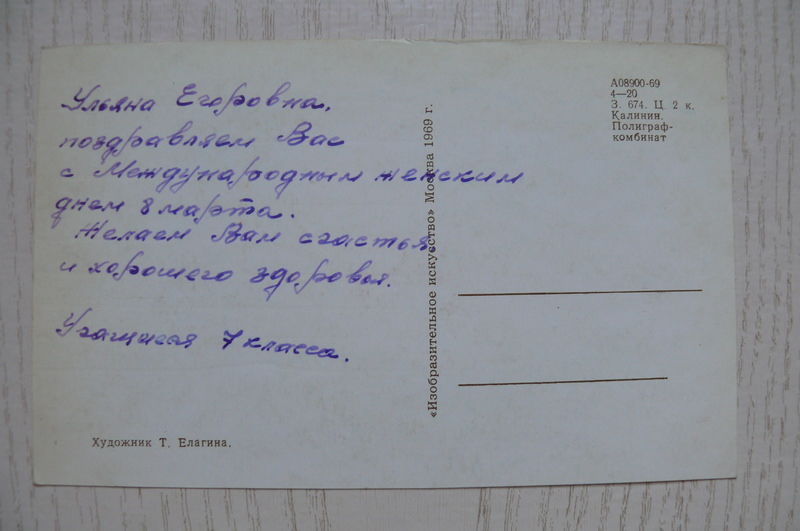 Ульяна Егоровна,
поздравляем Вас
с Международным женским
днем 8 марта.
Желаем Вам счастья
и хорошего здоровья.
Учащиеся 7 класса.
Художник Т. Елагина.
«Изобразительное искусство» Москва 1969 г.
А08900-69
4—20
З. 674. Ц. 2 к.
Калинин.
Полиграф-
комбинат